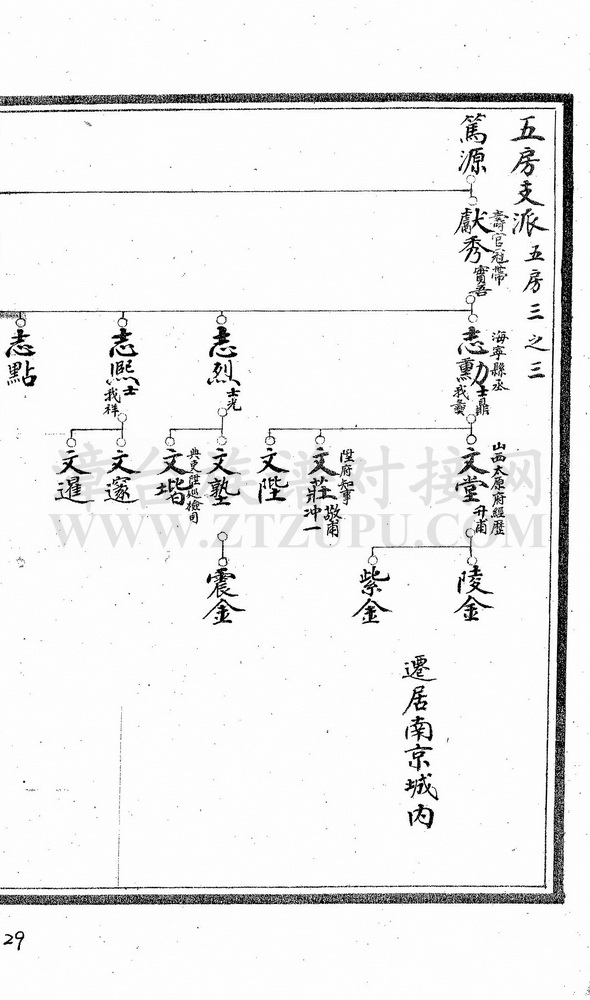 五房支派 五房三之三
篤源
獻秀 壽官冠帶 實吾
志勳 海寧縣丞 士鼎 我彙
志烈 士光
志熙 士 我祥
志點
文堂 山西太原府經歷 升甫
文莊 陞府知事 敬甫 冲一
文陛
文塾
文堦 典史陞巡檢司
文邃
文暹
陵金
紫金
震金
遷居南京城內
章台族谱对接网
WWW.ZTZUPU.COM
29